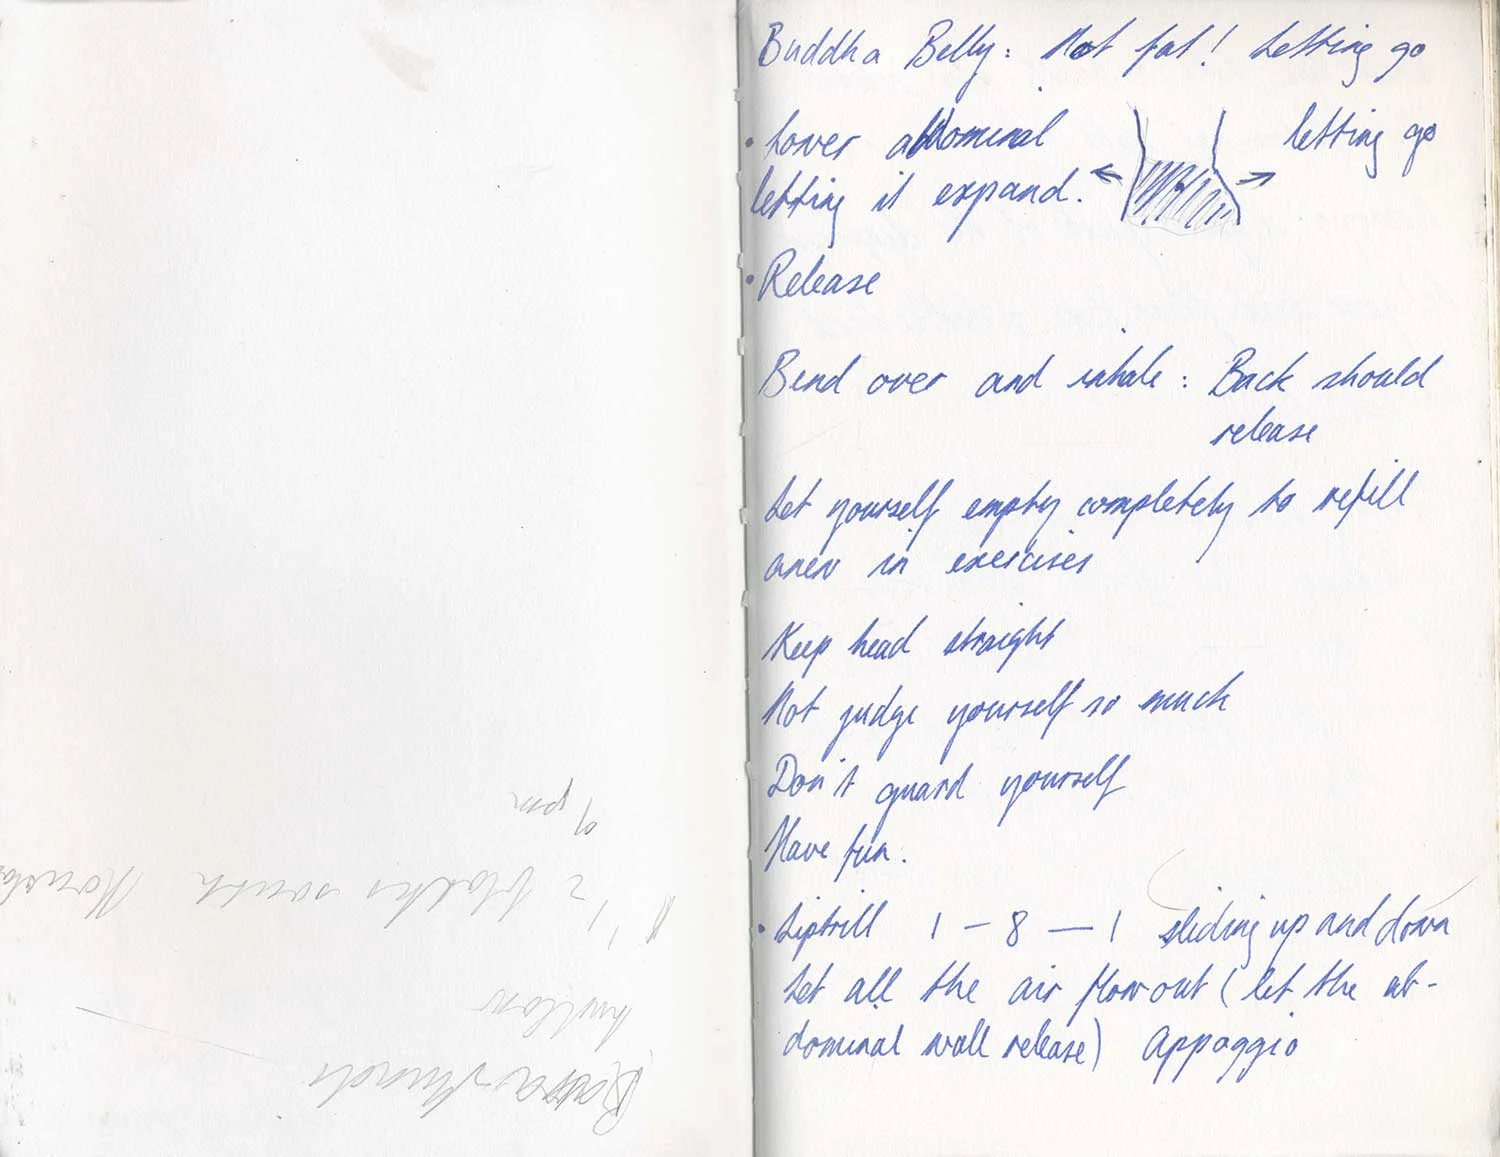 Buddha Belly: Not fat! Letting go
• Lower abdominal
letting it expand.
letting go
• Release
Bend over and inhale: Back should
release
Let yourself empty completely to refill
anew in exercises
Keep head straight
Not judge yourself so much
Don't guard yourself
Have fun.
• Liptrill 1 – 8 — 1 sliding up and down
Let all the air flow out (let the ab-
dominal wall release) Appoggio
9 pm
blocks south